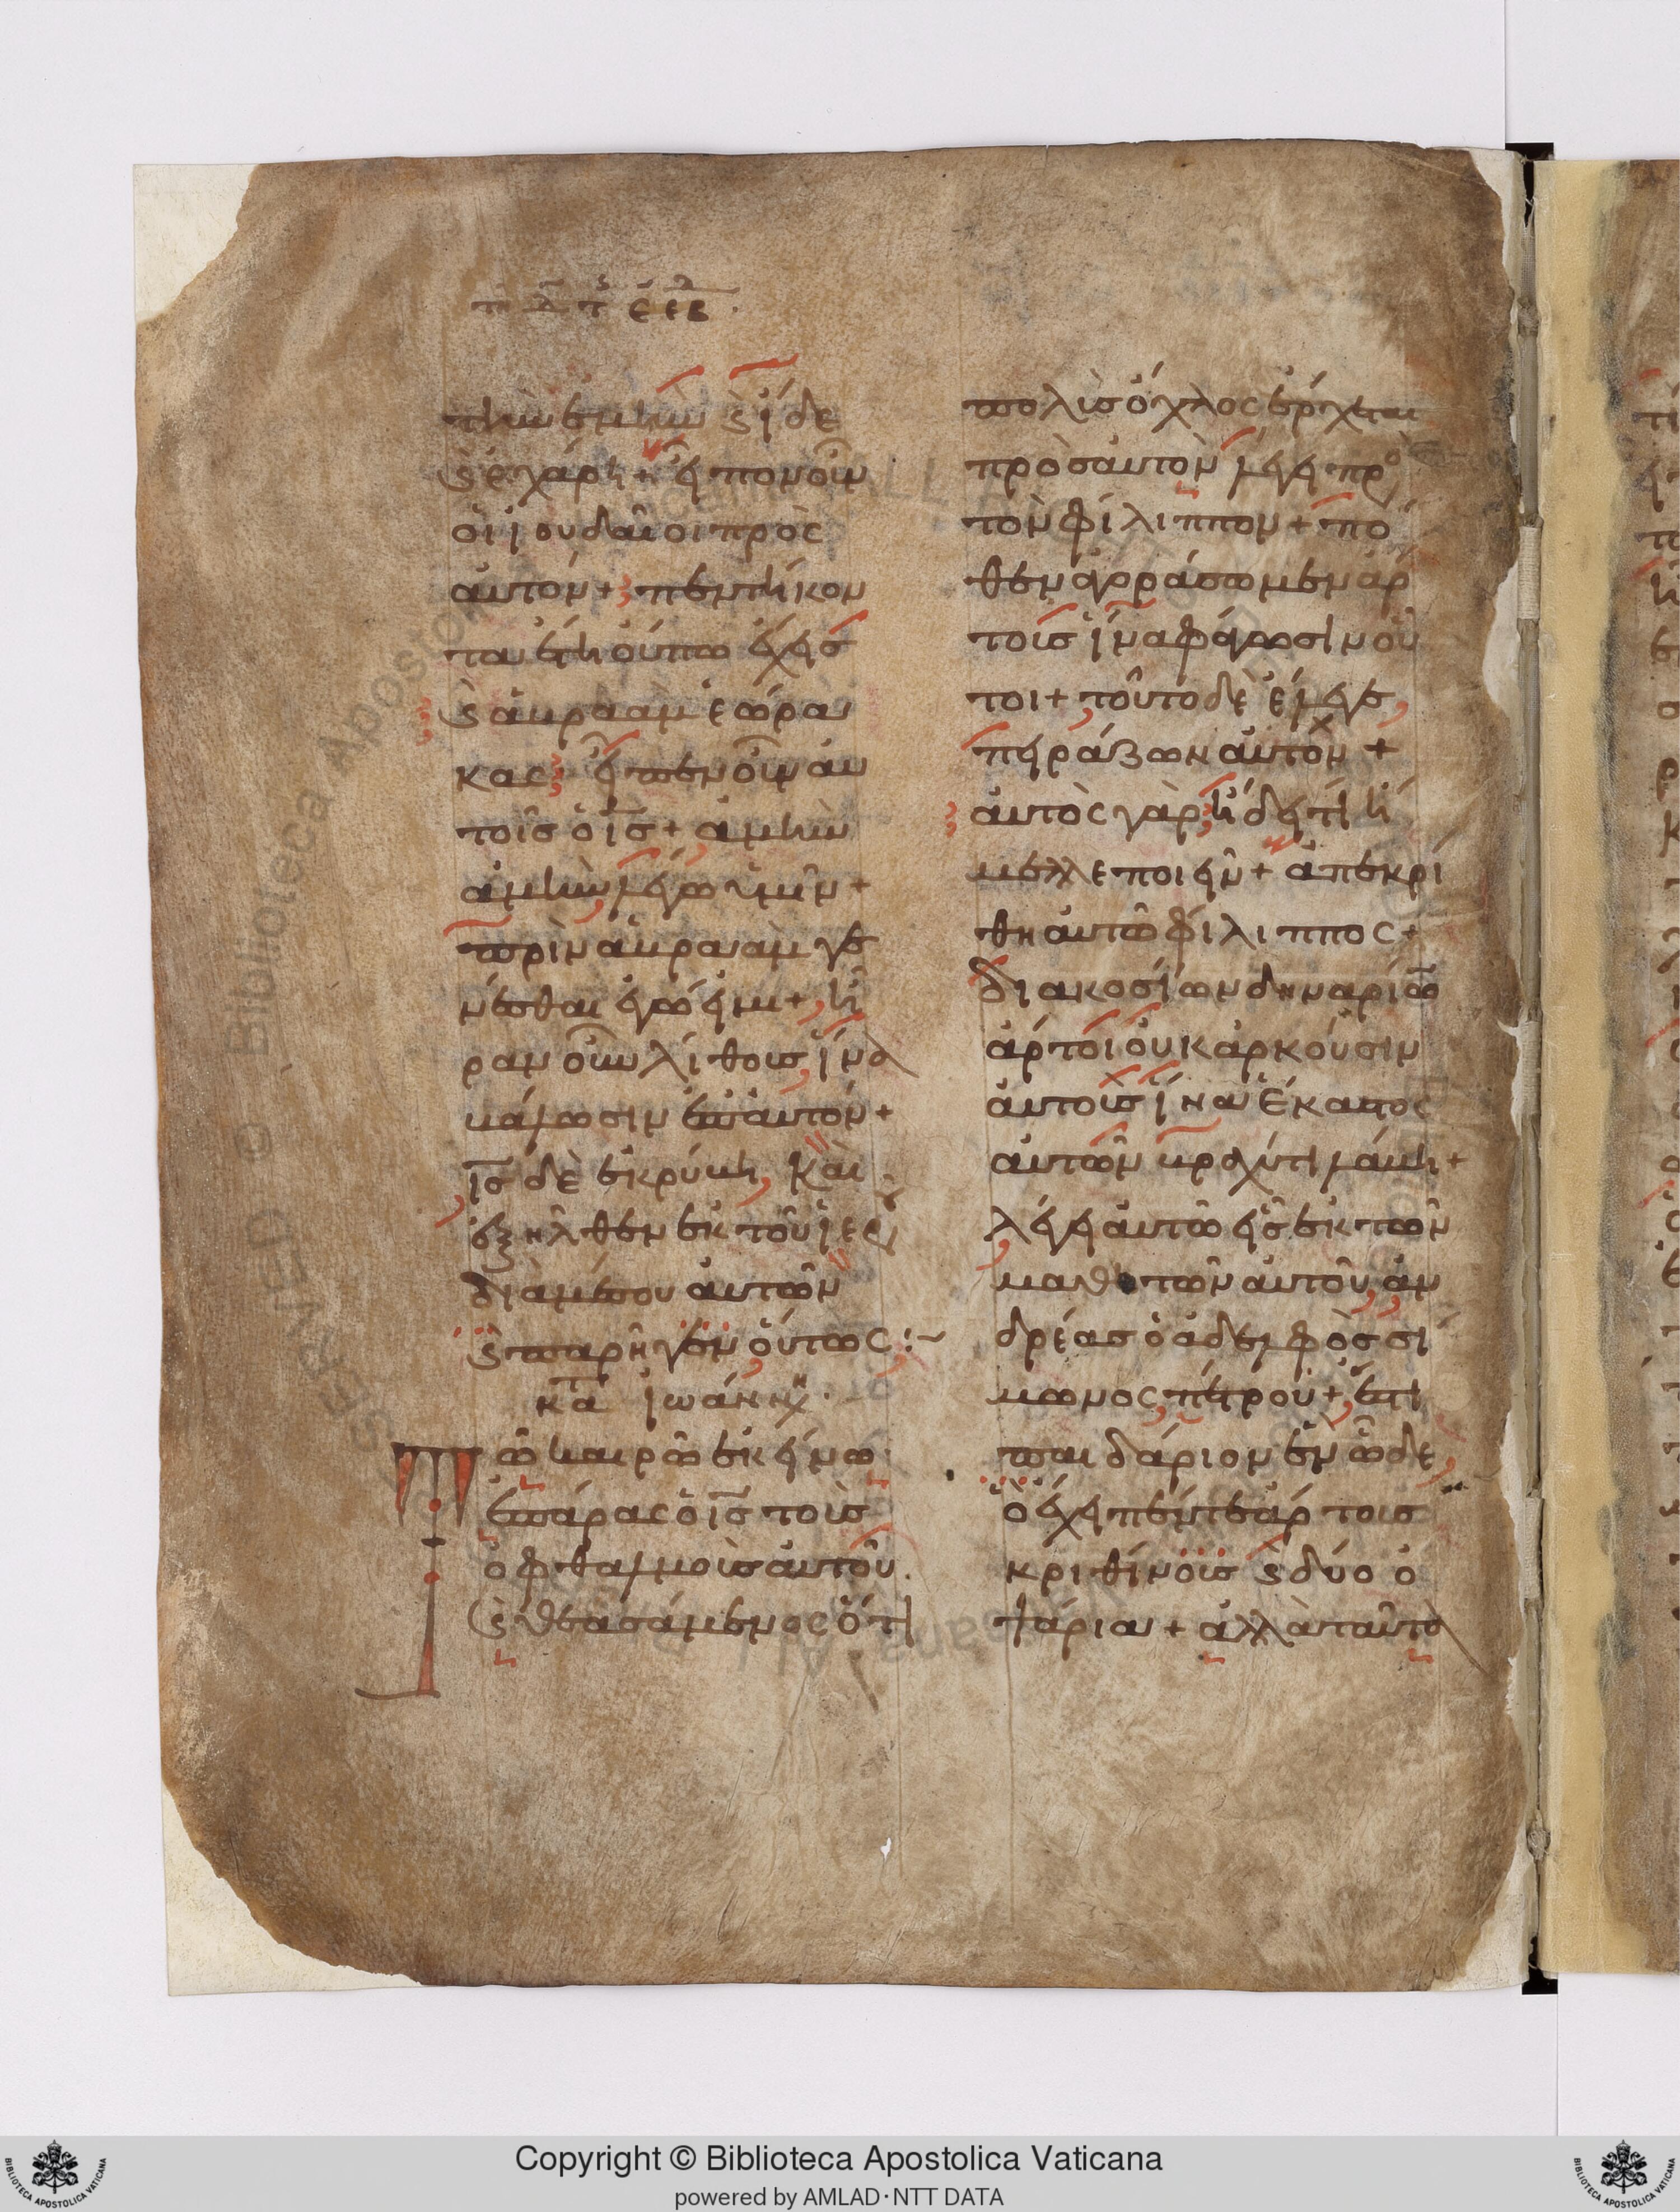 τὴν ἐμὴν ϗ ἴδε
ϗ ἐχάρη + εἶπον οὖν
οἱ ἰουδαῖοι πρὸς
αὐτόν + πεντήκον
τα ἔτη οὔπω ἔχεις
ϗ ἀβρααμ ἑώρα
κας; εἶπεν οὖν αὐ
τοῖς ὁ ις + ἀμὴν
ἀμὴν λέγω ὑμῖν +
πρὶν ἀβρααμ γε
νέσθαι ἐγώ εἰμι + ἦ
ραν οὖν λίθους ἵνα
βάλωσιν ἐπ αὐτόν +
ις δὲ ἐκρύβη, καὶ
ἐξῆλθεν ἐκ τοῦ ἱεροῦ
διὰ μέσου αὐτῶν
ϗ παρῆγεν οὕτως :~
κατὰ ἰωάννην.
Τῶ καιρῶ ἐκείνω
ἐπάρας ὁ ις τοὺς
ὀφθαλμοὺς αὐτοῦ.
ϗ θεασάμενος ὅτι
πολὺς ὄχλος ἔρχεται
πρὸς αὐτὸν λέγει πρὸς
τὸν φίλιππον + πό
θεν ἀγοράσωμεν ἄρ
τους ἵνα φάγωσιν οὗ
τοι + τοῦτο δὲ ἔλεγε
πειράζων αὐτόν +
αὐτὸς γὰρ ἤδει τί ἤ
μελλε ποιεῖν + ἀπεκρί
θη αὐτῶ φίλιππος +
διακοσίων δηναρίων
ἄρτοι οὐκ ἀρκοῦσιν
αὐτοῖς ἵνα ἕκαστος
αὐτῶν βραχύ τι λάβη +
λέγει αὐτῶ εἷς ἐκ τῶν
μαθητῶν αὐτοῦ, ἀν
δρέας ὁ ἀδελφὸς σί
μωνος πέτρου + ἔστι
παιδάριον ἓν ὧδε
ὃ ἔχει πέντε ἄρτους
κριθίνους ϗ δύο ὀ
ψάρια + ἀλλὰ ταῦτα